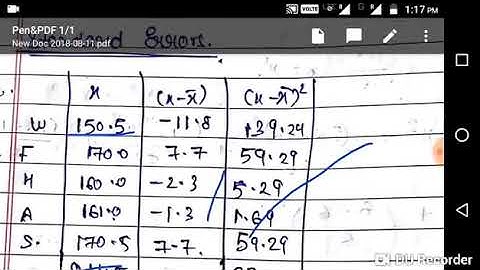 VOLTE 1:17 PM
Pen&PDF 1/1
New Doc 2018-08-11.pdf
Errors.
x (x-x̄) (x-x̄)²
W 150.5 -11.8 139.24
F 170.0 7.7 59.29
H 160.0 -2.3 5.29
A 161.0 -1.3 1.69
S. 170.5 7.7. 59.29
DU Recorder